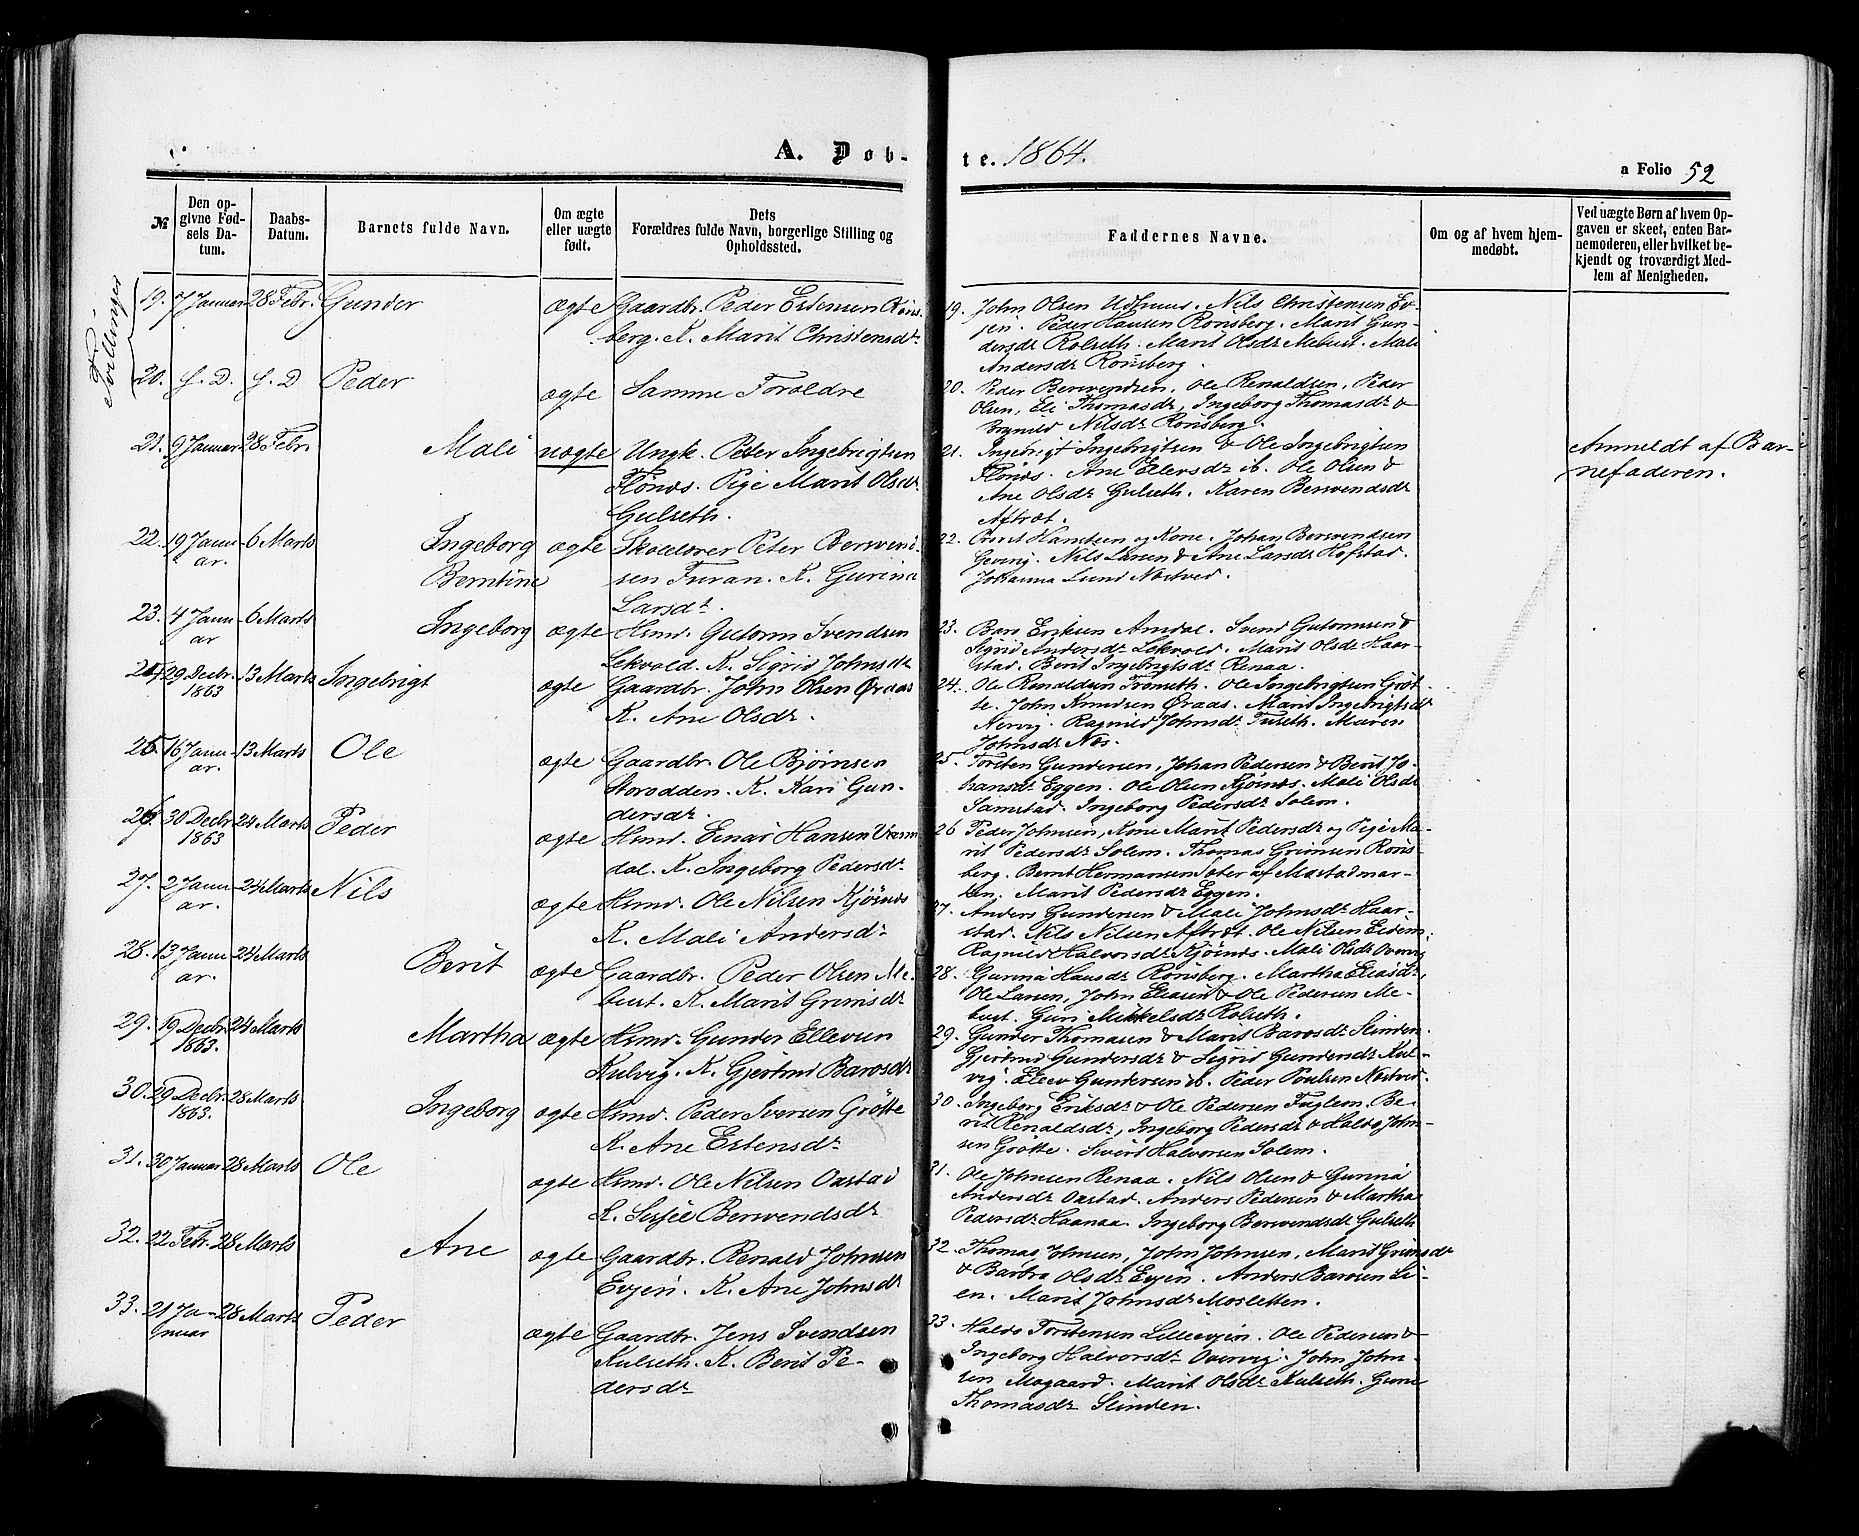 A. Døb-
te. 1864.
a Folio 52
№
Den op-
givne Fød-
sels Da-
tum.
Daabs-
Datum.
Barnets fulde Navn.
Om ægte
eller uægte
født.
Dets
Forældres fulde Navn, borgerlige Stilling og
Opholdssted.
Faddernes Navne.
Om og af hvem hjem-
medøbt.
Ved uægte Børn af hvem Op-
gaven er skeet, enten Bar-
nemoderen, eller hvilket be-
kjendt og troværdigt Med-
lem af Menigheden.
Tvillinger
19. 7 Januar 28 Febr. Gunder ægte Gaardbr. Peder Estensen Röns-
berg. K. Marit Christensdr
19. John Olsen Udhuus. Nils Christensen Ev-
jen. Peder Hansen Rönsberg. Marit Gun-
dersdr Rolseth. Marit Olsdr Mebust. Mali
Andersdr Rönsberg.
20. f. D. f. D Peder ægte Samme Foroldre
20. Peder Berwendsen, Ole Renaldsen, Peder
Olsen, Eli Thomasdr, Ingeborg Thomasdr &
Nilsdr Rönsberg.
21. 9 Januar 28 Febr. Mali uægte Ungk. Peter Ingebrigtsen
Flönæs. Pige Marit Olsdr
Gulseth.
21. Ingebrigt Ingebrigtsen & Ole Ingebrigtsen
Flönæs. Ane Ellersdr ib. Ole Olsen &
Ane Olsdr Gulseth. Karen Berwendsdr
Aftræt.
Anmeldt af Bar-
nefaderen.
22. 19 Janu-
ar. 6 Marts Ingeborg
Berntine ægte Skolelærer Peter Berwend-
sen Furan. K. Gurina
Larsdr.
22. Hansen og Kone. Johan Berwendsen
Gevig. Nils Larsen & Ane Larsdr Hofstad.
Johanna Lund Næstved.
23. 4 Janu-
ar 6 Marts Ingeborg ægte Hsmd. Gutorm Svendsen
Lekvold. K. Sigrid Johnsdr
23. Baro Eriksen Amdal. Svend Gutormsen &
Sigrid Andersdr Lekvold. Marit Olsdr Haar-
stad. Berit Ingebrigtsdr Renaa.
24. 29 Decbr.
1863 13 Marts Ingebrigt ægte Gaardbr. John Olsen Øraas
K. Ane Olsdr.
24. Ole Renaldsen Trönseth. Ole Ingebrigtsen Gröt-
te. John Knudsen Øraas. Marit Ingebrigtsdr
Nervig. Ragnild Johnsdr Fuseth. Maren
Johnsdr Næs.
25. 16 Janu-
ar. 13 Marts Ole ægte Gaardbr. Ole Bjørnsen
Storodden. K. Kari Gun-
dersdr.
25. Torsten Gundersen, Johan Pedersen & Berit Jo-
hansdr Eggen. Ole Olsen Kjösnæs. Mali Olsdr
Samstad. Ingeborg Pedersdr Solem.
26. 30 Decbr.
1863 24 Marts Peder ægte Hsmd. Einar Hansen
dal. K. Ingeborg Pedersdr
26 Peder Johnsen, Kone Marit Pedersdr og Pige Ma-
rit Pedersdr Solem. Thomas Grimsen Röns-
berg. Bernt Hermansen Sæter af Mostadmar-
ken. Marit Pedersdr Eggen.
27. 2 Janu-
ar. 24 Marts Nils ægte Hsmd. Ole Nilsen Kjösnæs
K. Mali Andersdr
27. Anders Gundersen & Mali Johnsdr Haar-
stad. Nils Nilsen Aftræt. Ole Nilsen Eidem.
Ragnild Halvorsdr Kjösnæs. Mali Olsdr Overvig
28. 13 Janu-
ar. 24 Marts Berit ægte Gaardbr. Peder Olsen Me-
bust. K. Marit Grimsdr
28. Gurina Hansdr Rönsberg. Martha Eliasdr,
Ole Larsen, John Eliasen & Ole Pedersen Me-
bust. Guri Mikkelsdr Rolseth.
29. 19 Decbr.
1863. 24 Marts Martha ægte Hsmd. Gunder Ellevsen
Kulvig. K. Gjertrud Barosdr
29. Gunder Thomasen & Marit Barosdr Slinden.
Gjertrud Gundersdr & Sigrid Gundersdr Kul-
vig. Ellev Gundersen ib. Peder Poulsen Næstved.
30. 29 Decbr.
1863. 28 Marts Ingeborg ægte Hsmd. Peder Iversen Grötte
K. Ane Estensdr
30. Ingeborg Eriksdr & Ole Pedersen Fuglem. Be-
rit Renaldsdr, Ingeborg Pedersdr & Haldo John-
sen Grötte. Sivert Halvorsen Solem.
31. 30 Januar 28 Marts Ole ægte Hsmd. Ole Nilsen Oastad
K. Sisfie Berwendsdr
31. Ole Johnsen Renaa. Nils Olsen & Gurina
Andersdr Oastad. Anders Pedersen & Martha
Pedersdr Haanaa. Ingeborg Berwendsdr Gulseth
32. 22 Febr. 28 Marts Ane ægte Gaardbr. Renald Johnsen
Evjen. K. Ane Johnsdr
32. Thomas Johnsen, John Johnsen, Marit Grimsdr
& Barbra Olsdr Evjen. Anders Barosen Li-
en. Marit Johnsdr Mosletten.
33. 21 Ja-
nuar 28 Marts Peder ægte Gaardbr. Jens Svendsen
Kulseth. K. Berit Pe-
dersdr
33. Haldo Torstensen Lilleevjen. Ole Pedersen &
Ingeborg Halvorsdr Overvig. John John-
sen Mogaard. Marit Olsdr Kulseth. Gune
Thomasdr Slinden.